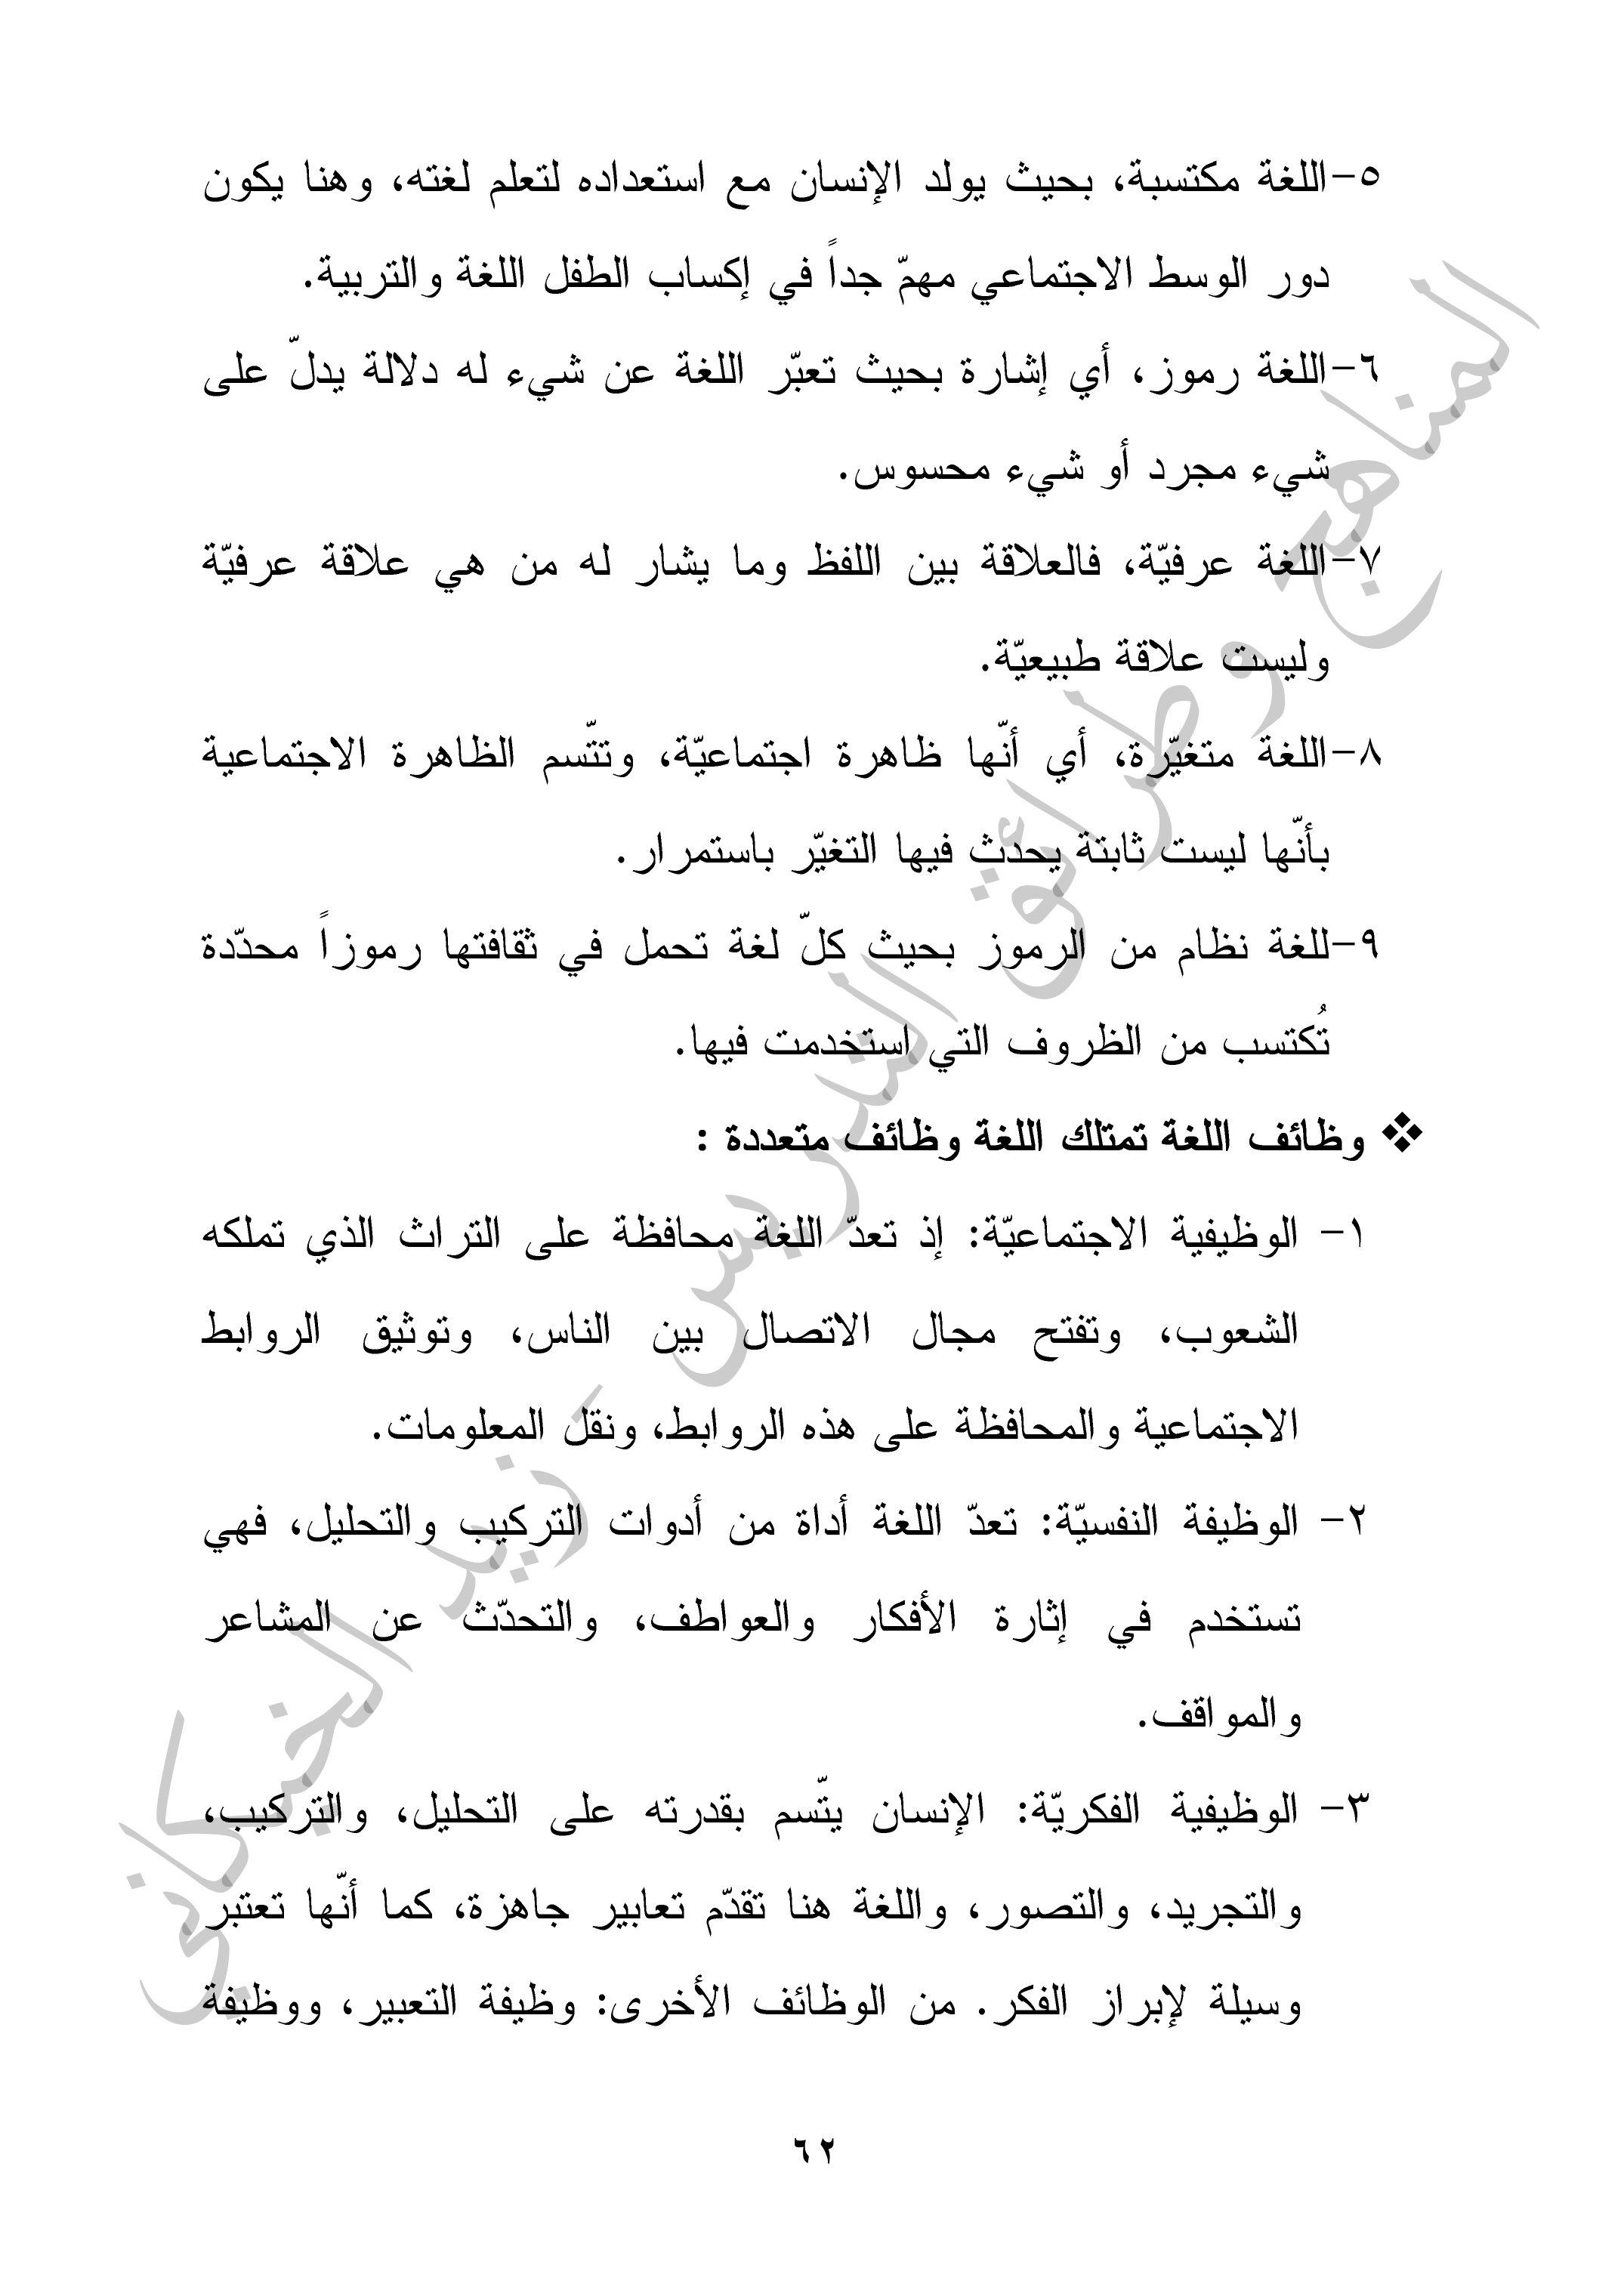 ٥-اللغة مكتسبة، بحيث يولد الإنسان مع استعداده لتعلم لغته، وهنا يكون
دور الوسط الاجتماعي مهمّ جداً في إكساب الطفل اللغة والتربية.
٦-اللغة رموز، أي إشارة بحيث تعبّر اللغة عن شيء له دلالة يدلّ على
شيء مجرد أو شيء محسوس.
٧-اللغة عرفيّة، فالعلاقة بين اللفظ وما يشار له من هي علاقة عرفيّة
وليست علاقة طبيعيّة.
٨-اللغة متغيّرة، أي أنّها ظاهرة اجتماعيّة، وتتّسم الظاهرة الاجتماعية
بأنّها ليست ثابتة يحدث فيها التغيّر باستمرار.
٩-للغة نظام من الرموز بحيث كلّ لغة تحمل في ثقافتها رموزاً محدّدة
تُكتسب من الظروف التي استخدمت فيها.
❖ وظائف اللغة تمتلك اللغة وظائف متعددة :
١- الوظيفية الاجتماعيّة: إذ تعدّ اللغة محافظة على التراث الذي تملكه
الشعوب، وتفتح مجال الاتصال بين الناس، وتوثيق الروابط
الاجتماعية والمحافظة على هذه الروابط، ونقل المعلومات.
٢- الوظيفة النفسيّة: تعدّ اللغة أداة من أدوات التركيب والتحليل، فهي
تستخدم في إثارة الأفكار والعواطف، والتحدّث عن المشاعر
والمواقف.
٣- الوظيفية الفكريّة: الإنسان يتّسم بقدرته على التحليل، والتركيب،
والتجريد، والتصور، واللغة هنا تقدّم تعابير جاهزة، كما أنّها تعتبر
وسيلة لإبراز الفكر. من الوظائف الأخرى: وظيفة التعبير، ووظيفة
٦٢
المناهج وطرائق التدريس - زيد الخيكاني